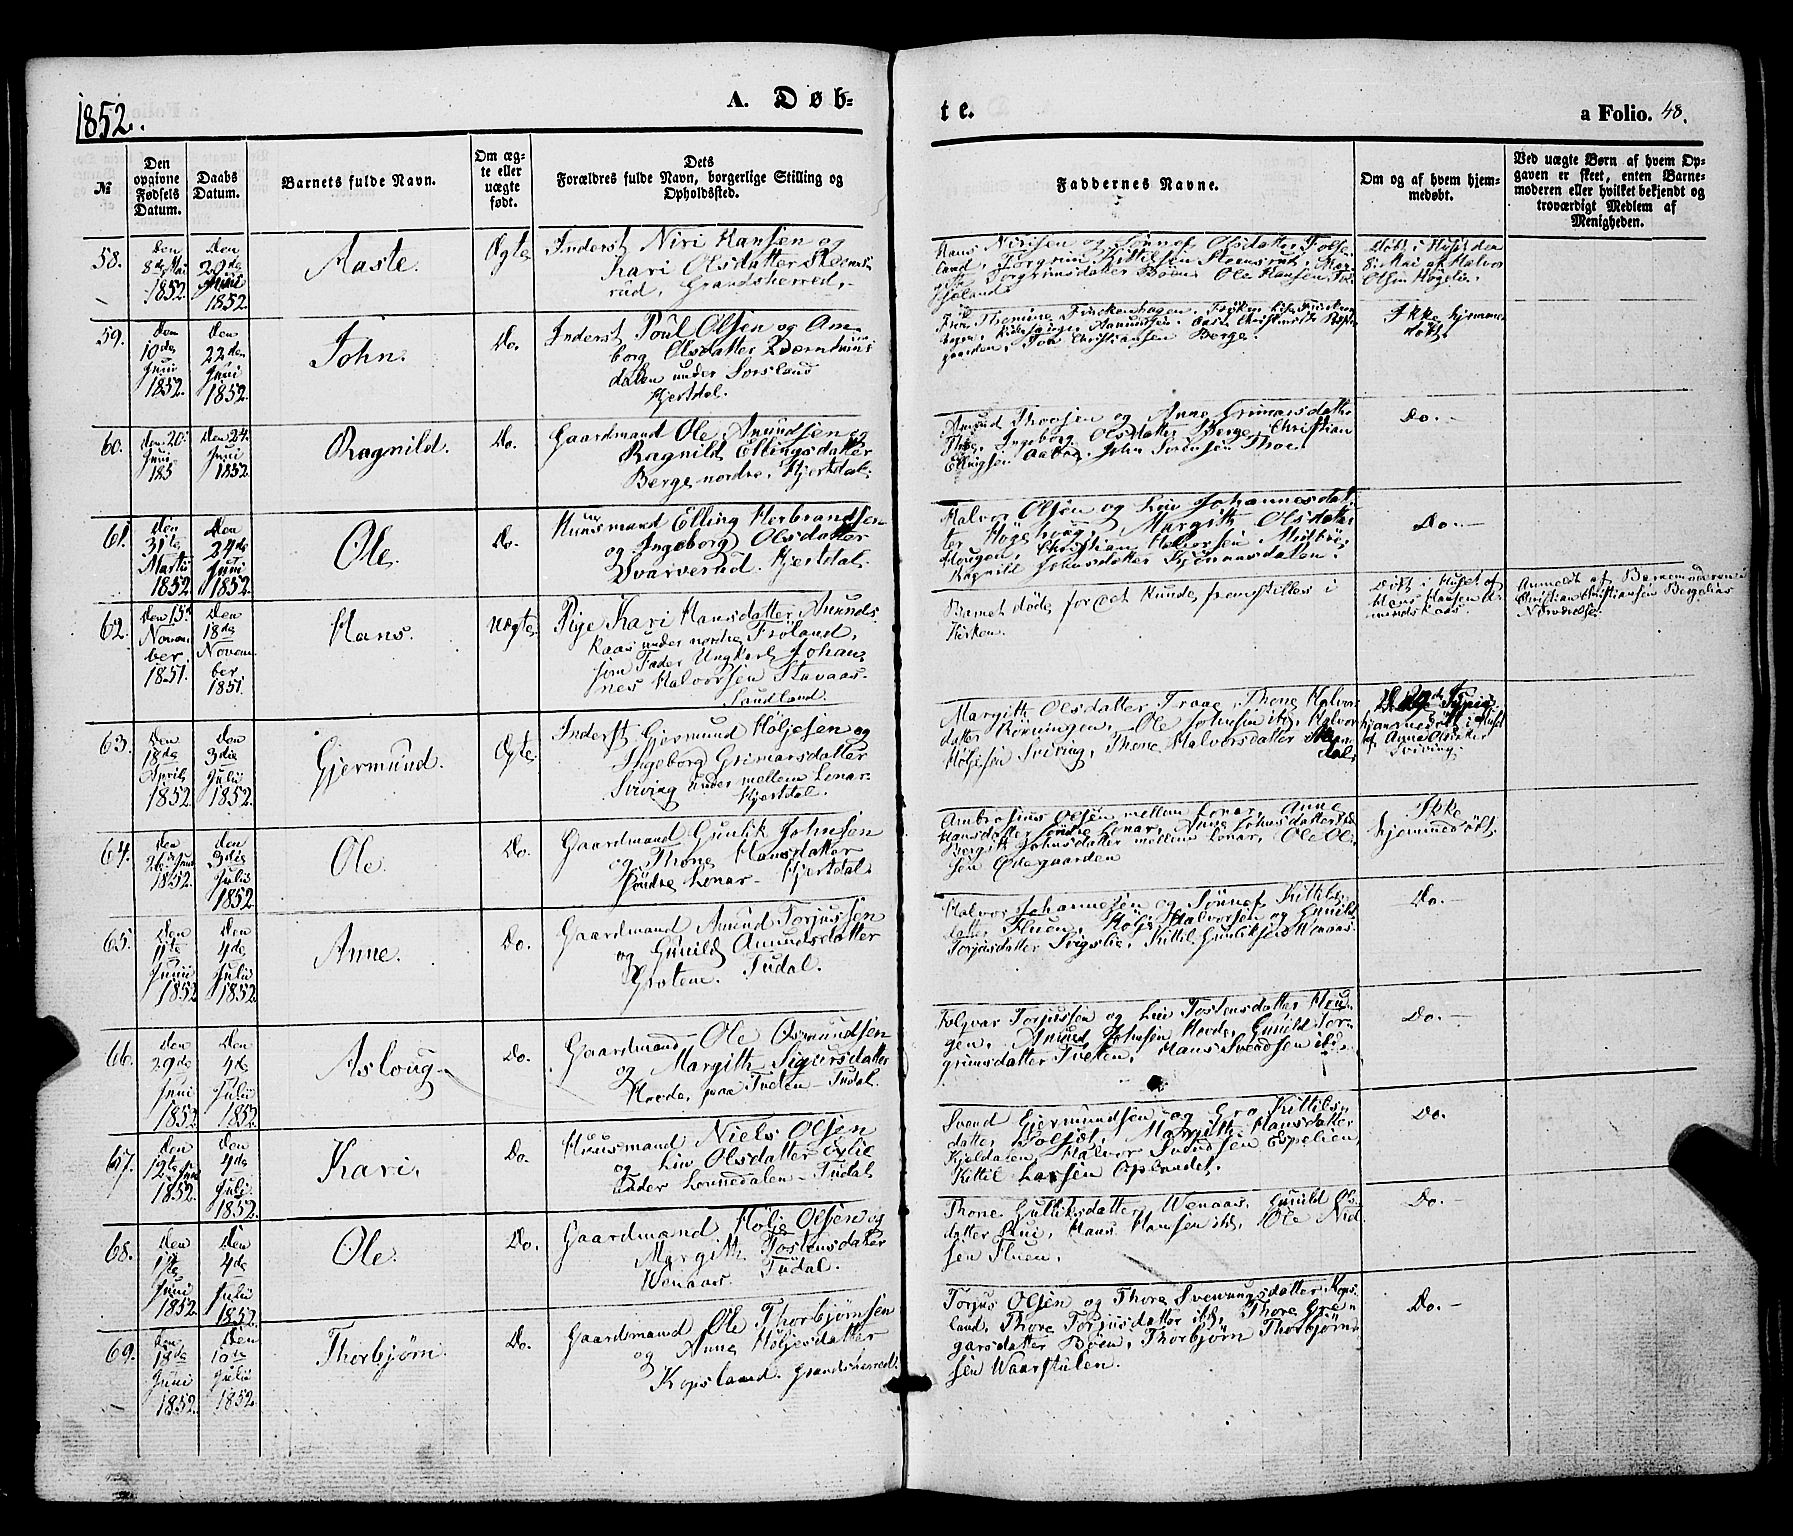 1852.
A. Døb-
te.
a Folio. 48.
№
Den opgivne Fødsels Datum.
Daabs Datum.
Barnets fulde Navn.
Om ægte eller uægte født.
Dets Forældres fulde Navn, borgerlige Stilling og Opholdssted.
Faddernes Navne.
Om og af hvem hjemmedøbt.
Ved uægte Børn af hvem Opgaven er skeet, enten Barnemoderen eller hvilket bekjendt og troværdigt Medlem af Menigheden.
58.
Den
8de Mai
1852.
Den
20de
Juni
1852
Aaste.
Ægte
Inderst Niri Hansen og
Kari Olsdatter Steens-
rud, Grandsherred,
Hans Nirisen og Sønnef Olsdatter
land, Torgrim Kittilsen Steensrud, Mar-
gith Torgrimsdatter Bøen, Ole Hansen
Døbt i Huset den
8 Mai af Halvor
Olsen Høgelie.
59.
Den
10de
Juni
1852.
Den
22den
Juni
1852.
John.
Do.
Inderst Poul Olsen og Am-
borg Olsdatter
dalen under Sorsland
Hjertdal.
gaarden, Jon Christiansen Berge.
Ikke hjemme
døbt.
60.
Den 20.
Juni
185
Den 24.
Juni
1852.
Ragnild.
Do.
Gaardmand Ole Anundsen og
Ragnild Ellingsdatter
Berge nordre, Hjertdal.
Amund Thovsen og Anne Grimarsdatter
Ingeborg Olsdatter Berge, Christian
Ellingsen Aabøe, John Sørensen Thoe.
Do. -
61.
Den
31te
Martii
1852
Den
24de
Juni
1852.
Ole.
Do.
Huusmand Elling Herbrandsen
og Ingeborg Olsdatter
Svarverud. Hjertdal.
Halvor Olsen og Liv Johannesdat-
ter Høgehoug, Margith Olsdatter
Hougen, Christian Halvorsen Midbøe,
Ragnild Johnsdatter Kjønnaasdalen.
Do. -
62.
Den 15de
Novem-
ber
1851.
Den
18de
Novem-
ber
1851.
Hans.
Uægte
Pige Kari Hansdatter Anunds
kaas under nordre Frøland,
som Fader Ungkarl Johan-
nes Halvorsen Stavaas-
Saudland.
Barnet døde, før det kunde fremstilles i
Kirken.
Døbt i Huset af
Hans Hansen A-
mundskaas.
Anmeldt af Barnemoderen
Christian Christiansen Bergelias
Nærværelse.
63.
Den
18de
April
1852.
Den
3die
Julii
1852.
Gjermund.
Ægte
Inderst Gjermund Høljesen og
Ingeborg Grimarsdatter
Sviving under mellem Lonar-
Hjertdal.
Margith Olsdatter Traae, Thone Halvors-
datter Rørningen, Ole Johnsen ibd, Halvor
Høljesen Sviving, Thone Halvorsdatter
dal.
hjemmedøbt i Huset
af Anne Olsdatter
Sviving.
64.
Den
26 Juni
1852.
Den
3die
Julii
1852.
Ole.
Do.
Gaardmand Gunlik Johnsen
og Thone Hansdatter
søndre Lonar - Hjertdal
Ambrosius Olsen mellem Lonar, Anne
Hansdatter søndre Lonar, Anne Johnsdatter ibd.
Bergith Johnsdatter mellem Lonar, Ole Ol-
sen Ødegaarden
Ikke
hjemmedøbt.
65.
Den
11te
Junii
1852
Den
4de
Julii
1852.
Anne.
Do.
Gaardmand Amund Torjussen
og Gunild Amundsdatter
Grotene. Tudal.
Halvor Johannesen og Sønnef Kittils-
datter Fluen, Hølje Halvorsen og Gunild
Torjusdatter Svigslie, Kittil Gunliksen Wenaas.
Do. -
66.
Den
29de
Juni
1852
Den
4de
Julii
1852.
Asloug
Do.
Gaardmand Ole Osmundsen
og Margith Sigursdatter
Hovde, paa Tveten - Tudal.
Folqvar Torjussen og Liv Tostensdatter Hou-
gen, Amund Johnsen Hovde, Gunild Tor-
grimsdatter Tveten, Hans Svendsen ibd.
Do. -
67.
Den
12te Juni
1852.
Den
4de
Juli
1852.
Kari.
Do.
Huusmand Niels Olsen
og Liv Olsdatter Øylie
under Lonnedalen - Tudal
Svend Gjermundsen og Gro Kittils-
datter Holsjøl, Margith Hansdatter
Kjeldalen, Halvor Svendsen Espelien,
Kittil Larsen Oplandet.
Do.
68.
Den
1ste
Juni
1852
Den
4de
Julii
1852.
Ole.
Do.
Gaardmand Hølje Olsen og
Margith Tostensdatter
Wenaas. Tudal.
Thone Gulliksdatter Wenaas, Gunild Ols-
datter Flui, Hans Hansen ibd, Ole Niel-
sen Fluen.
Do. -
69.
Den
18de
Juni
1852.
Den
10de
Julii
1852.
Thorbjørn.
Do.
Gaardmand Ole Thorbjørnsen
og Anne Høljesdatter
Kopsland. Grandsherred.
Torjus Olsen og Thore Svenungsdatter Kops-
land, Thore Torjusdatter ibd, Thore Gre-
garsdatter Bøen, Thorbjørn Thorbjørn-
sen Waarstulen.
Do. -